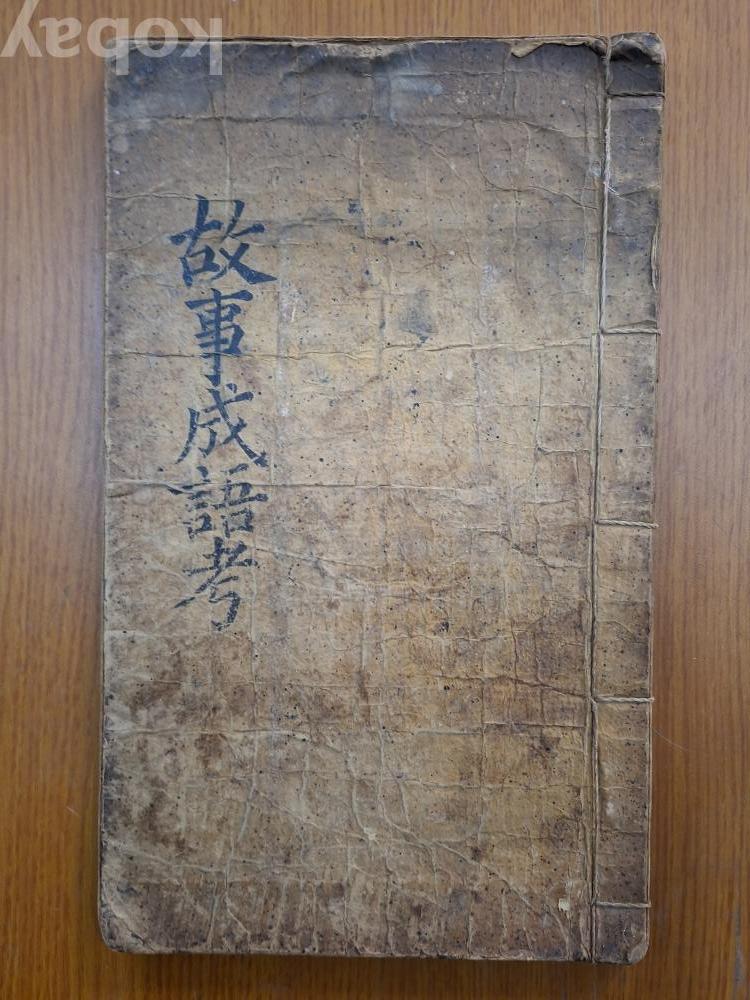 kobay
故事成語考